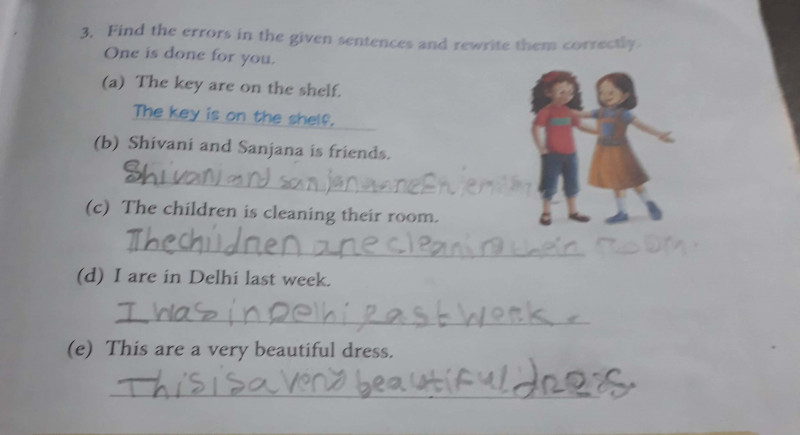 3. Find the errors in the given sentences and rewrite them correctly.
One is done for you.
(a) The key are on the shelf.
The key is on the shelf.
(b) Shivani and Sanjana is friends.
Shivani and sanjana are
(c) The children is cleaning their room.
The children are cleaning their room.
(d) I are in Delhi last week.
I was in Delhi last week.
(e) This are a very beautiful dress.
This is a very beautiful dress.